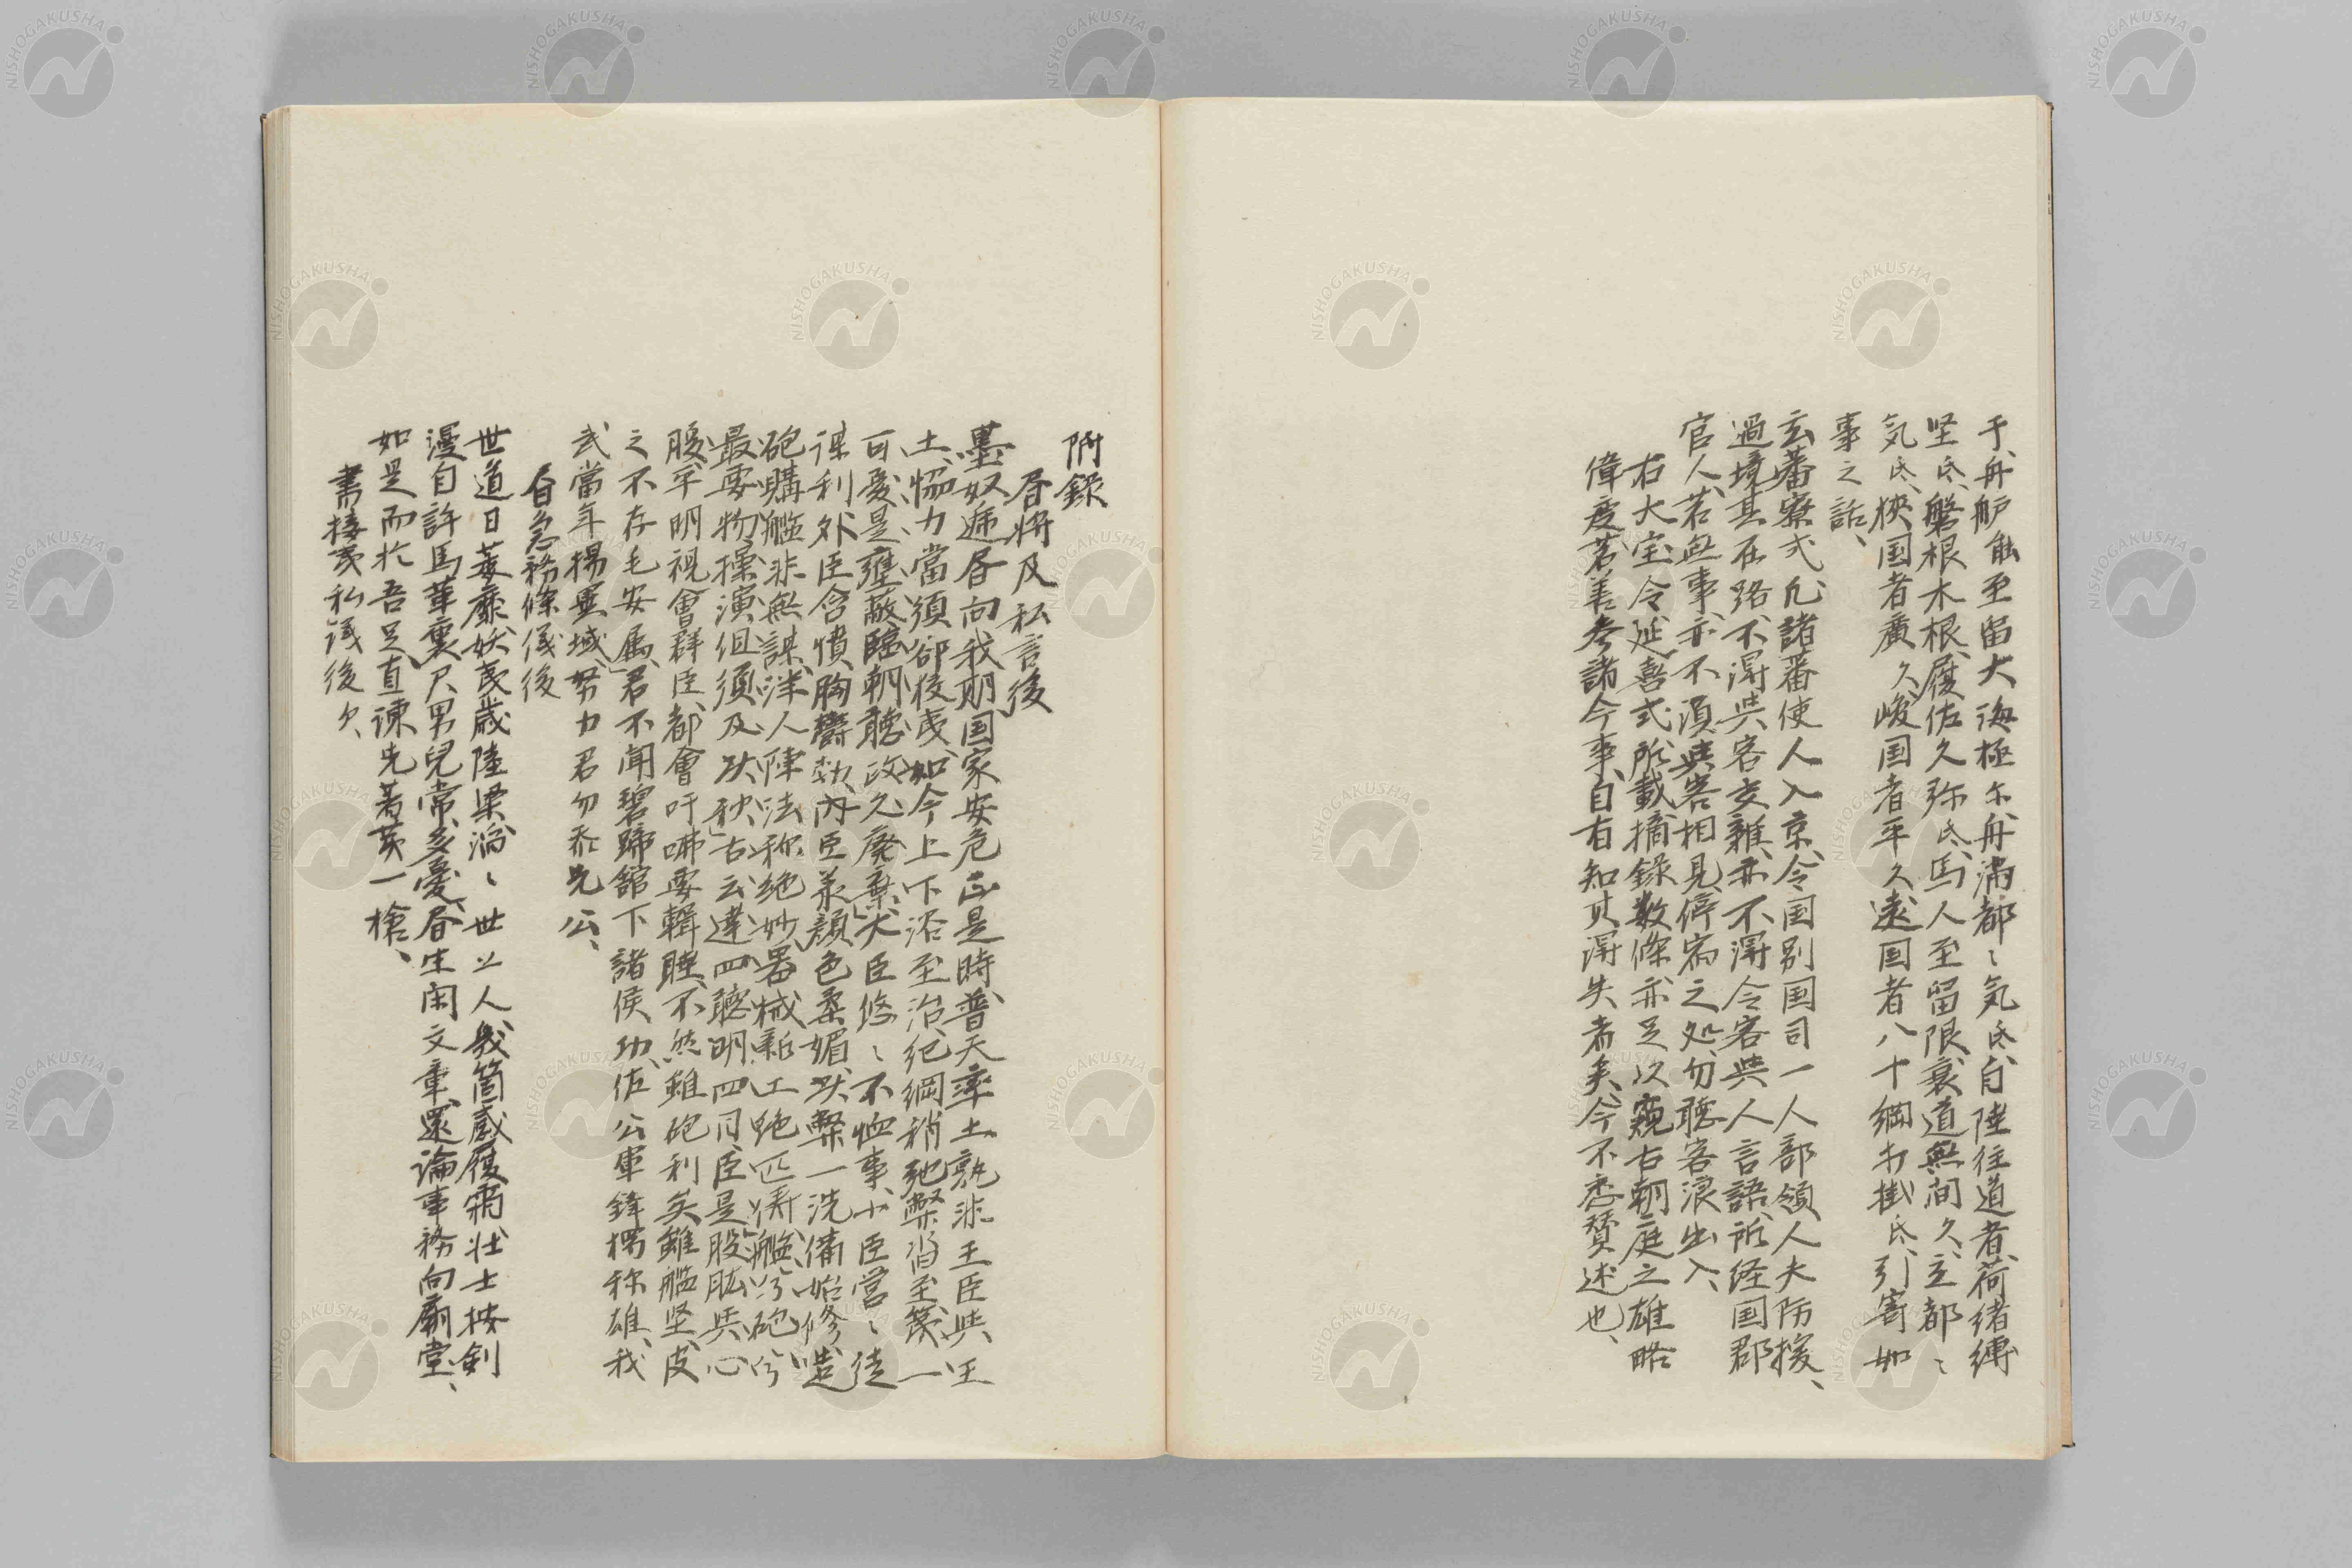 干、舟舮能至留大海極尓、舟満都〻気氐、自陸往道者、荷緒縛
坚氐、磐根木根、履佐久弥氐、馬人至留限、衰道無间久、立都〻
気氐、狭国者廣久、峻国者平久、遠国者八十綱打掛氐、引寄如
事之話、
玄蕃寮式、凡諸蕃使人入京、令国別国司一人部領、人夫防援、
過境、其在路不得与客交雜、亦不得令客与人言語、所経国郡
官人、若無事、亦不須与客相見、停宿之処、勿聴客浪出入、
右大宝令、延喜式所載、摘錄数條、亦足以窺古朝庭之雄略
偉度、若善考諸今事、自有知其得失者矣、今不悉贅述也、
附録
唇將及私言後
墨奴逓唇向我期、国家安危正是時、普天率土孰非王臣、与王
土、協力當須卻挍夷、如今上下浴至治、紀綱稍弛弊沿至、箴一
可憂是壅蔽、臨朝聴政久廃棄、大臣悠〻不恤事、小臣営〻徒
謀利、外臣含憤胸欝勃、内臣羕顔色柔媚、以弊一洗備始修、造
砲購艦非無謀、洋人陣法称絶妙、器械新工絶匹儔、艦兮砲兮
最要物、操演但須及以秋、古云達四聰明四目、臣是股肱与心
腹、卒明視會群臣、都會吁咈要輯睦、不然雖砲利矣雖艦坚、皮
之不存毛安属、君不聞碧蹄館下諸侯、功、佐公軍鋒獨称雄、我
武當年揚異域、努力君勿忝先公、
自急務條儀後
世道日萎靡、妖夷歳陸梁、滔〻世上人、幾箇感履霜、壮士按剣
漫自許、馬革裹尺男兒常、多憂唇生闲文章、還論事務向廟堂、
如是而於吾足、直諌先著英一槍、
書接夷私議後欠、